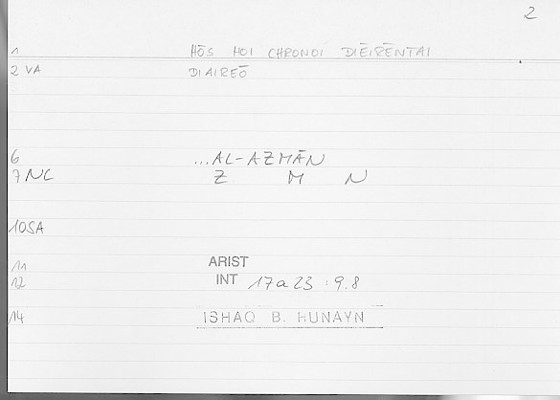 2
1 HŌS HOI CHRONOI DIĒIRĒNTAI
2 VA DIAIREŌ
6 ...AL-AZMĀN
7 NC Z M N
10SA
11 ARIST
12 INT 17a23 : 9.8
14 ISHAQ B. HUNAYN